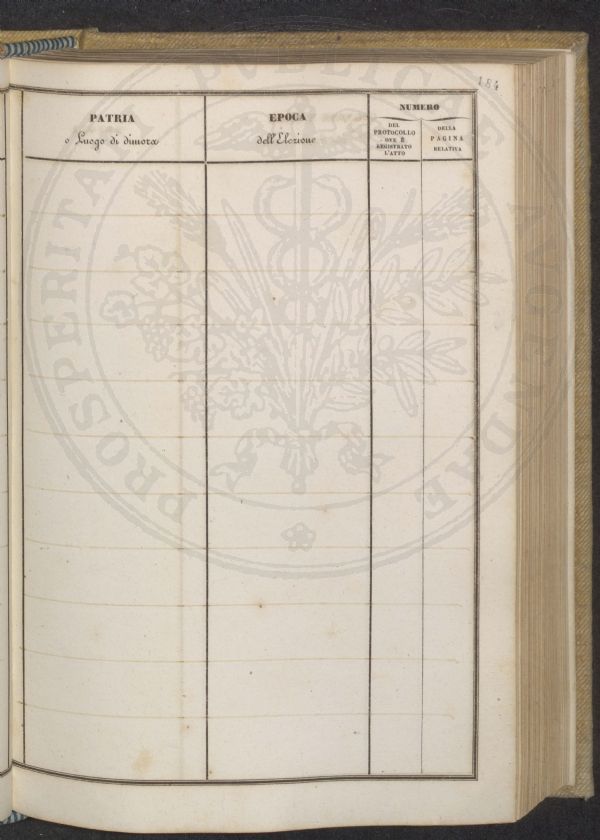 184
PATRIA
o Luogo di dimora
EPOCA
dell'Elezione
NUMERO
DEL
PROTOCOLLO
OVE È
REGISTRATO
L'ATTO
DELLA
PAGINA
RELATIVA
PROSPERITATI PUBLICAE AUGENDAE